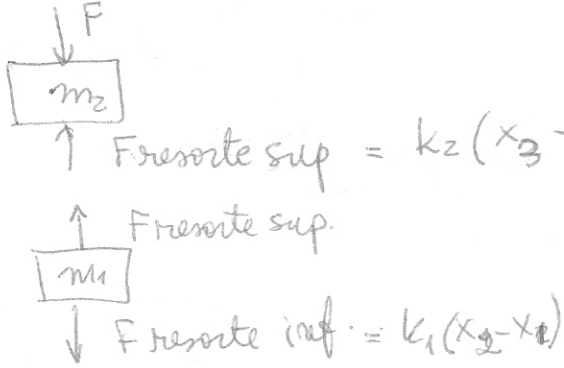 F
m₂
F resorte sup = k₂(x₃ -
F resorte sup.
m₁
F resorte inf. = k₁(x₂-x₁)